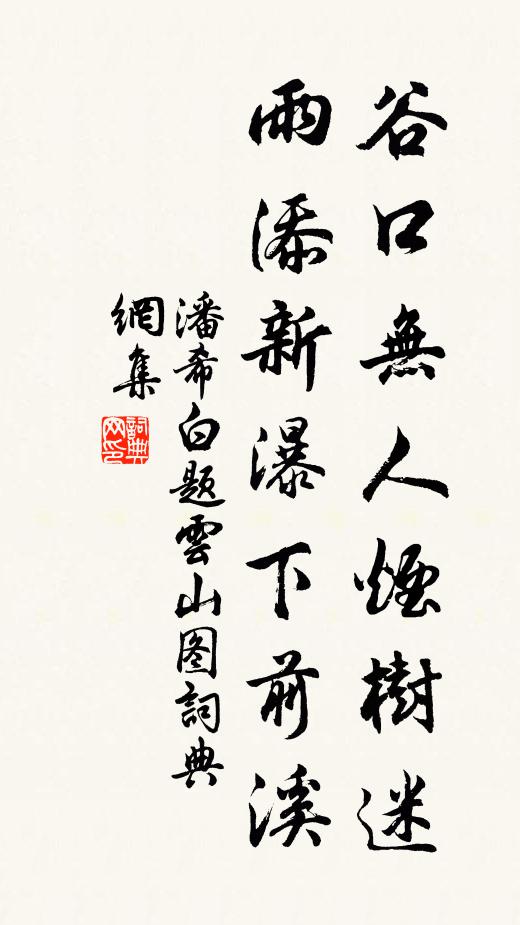 谷口無人煙樹迷
雨添新瀑下前溪
潘希白題雲山图詞典
網集
詞典
网印